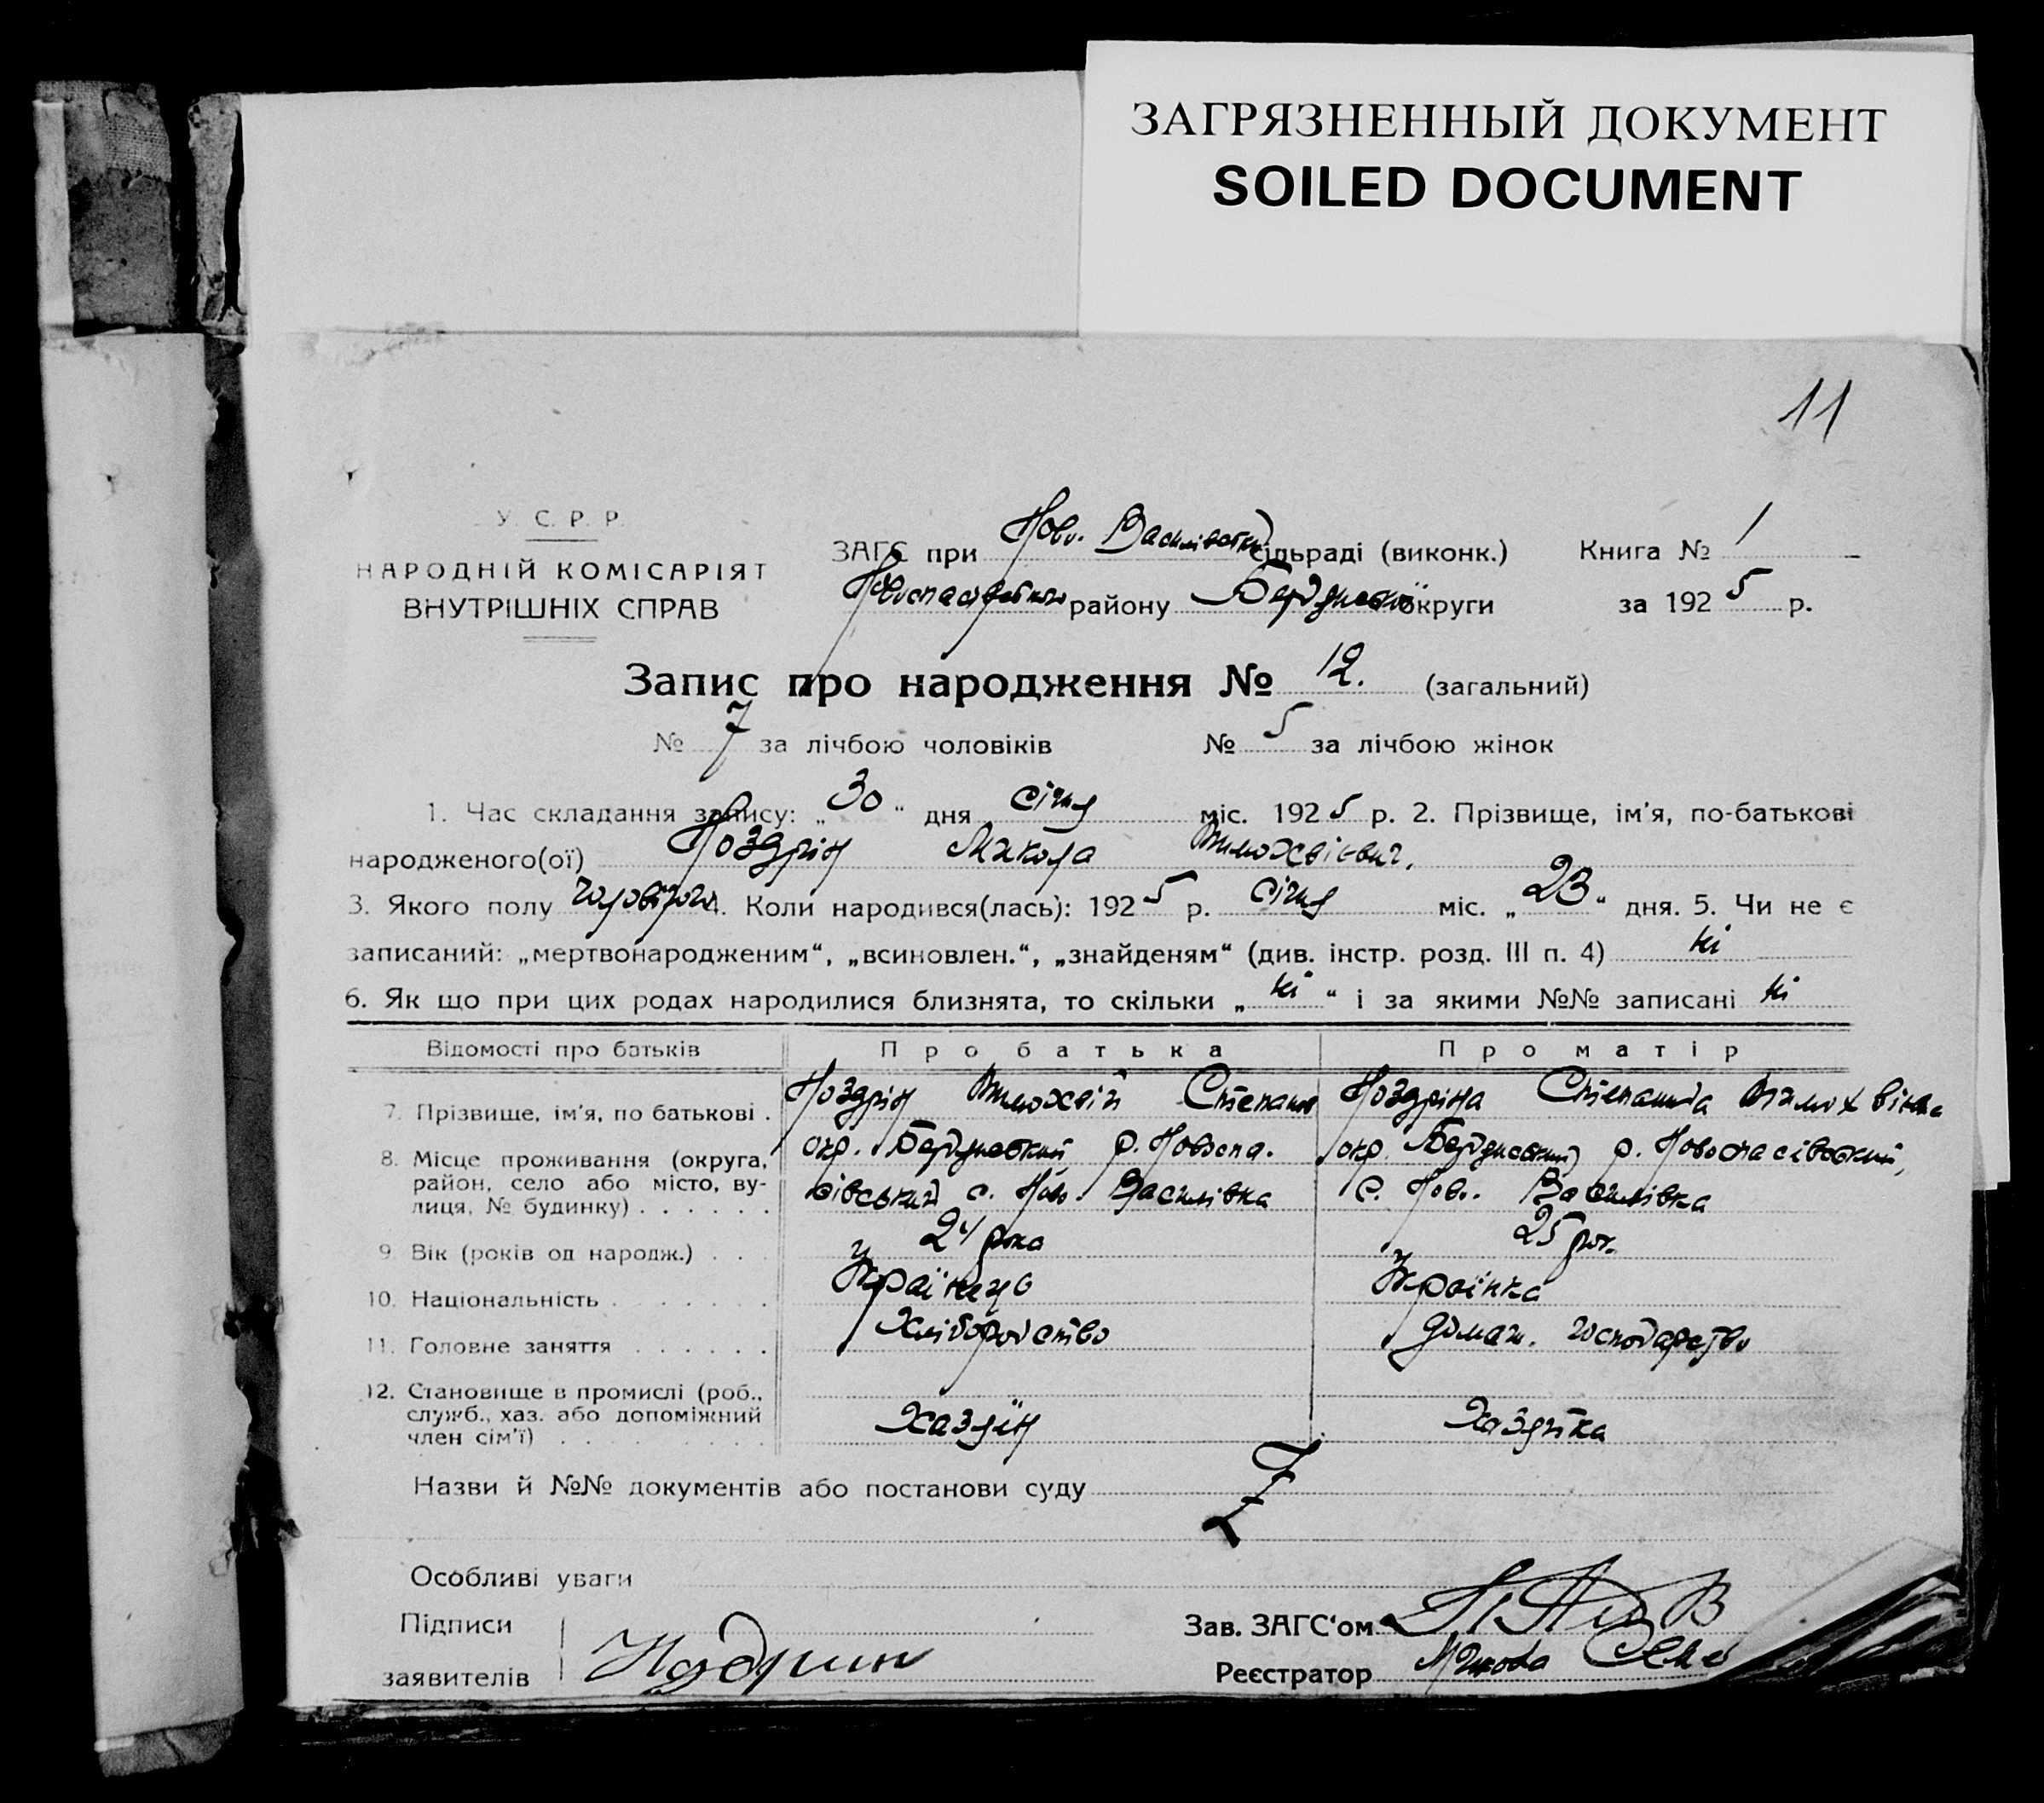 ЗАГРЯЗНЕННЫЙ ДОКУМЕНТ
SOILED DOCUMENT
11
У. С. Р. Р.
НАРОДНІЙ КОМІСАРІЯТ
ВНУТРІШНІХ СПРАВ
ЗАГС при Ново. Василівській сільраді (виконк.) Книга № 1
району Бердянської округи за 1925 р.
Запис про народження № 12. (загальний)
№ 7 за лічбою чоловіків № 5 за лічбою жінок
1. Час складання запису: „30“ дня січня міс. 1925 р. 2. Прізвище, ім’я, по-батькові
народженого(ої) Ноздрін Микола Тимохвієвич.
3. Якого полу чоловічого 4. Коли народився(лась): 1925 р. січня міс. „23“ дня. 5. Чи не є
записаний: „мертвонародженим“, „всиновлен.“, „знайденям“ (див. інстр. розд. III п. 4) ні
6. Як що при цих родах народилися близнята, то скільки „ні“ і за якими №№ записані ні
Відомості про батьків Про батька Про матір
7. Прізвище, ім’я, по батькові . Ноздрін Тимохвій Степанов Ноздріна Степанида
8. Місце проживання (округа, район, село або місто, вулиця, № будинку) . . . . . . окр. Бердянський р. Новоспасівський с. Ново. Василівка окр. Бердянський р. Новоспасівський, с. Ново. Василівка
9. Вік (років од народж.) . . . 24 рока 25 рок.
10. Національність . . . . . . . Українець Українка
11. Головне заняття . . . . . . Хліборобство домаш. господарство
12. Становище в промислі (роб., служб., хаз. або допоміжний член сім’ї) . . . . . . . . . Хазяїн Хазяїка
Назви й №№ документів або постанови суду
Особливі уваги
Підписи
заявителів
Зав. ЗАГС‘ом
Реєстратор